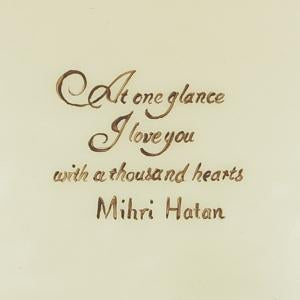 At one glance
I love you
with a thousand hearts
Mihri Hatan